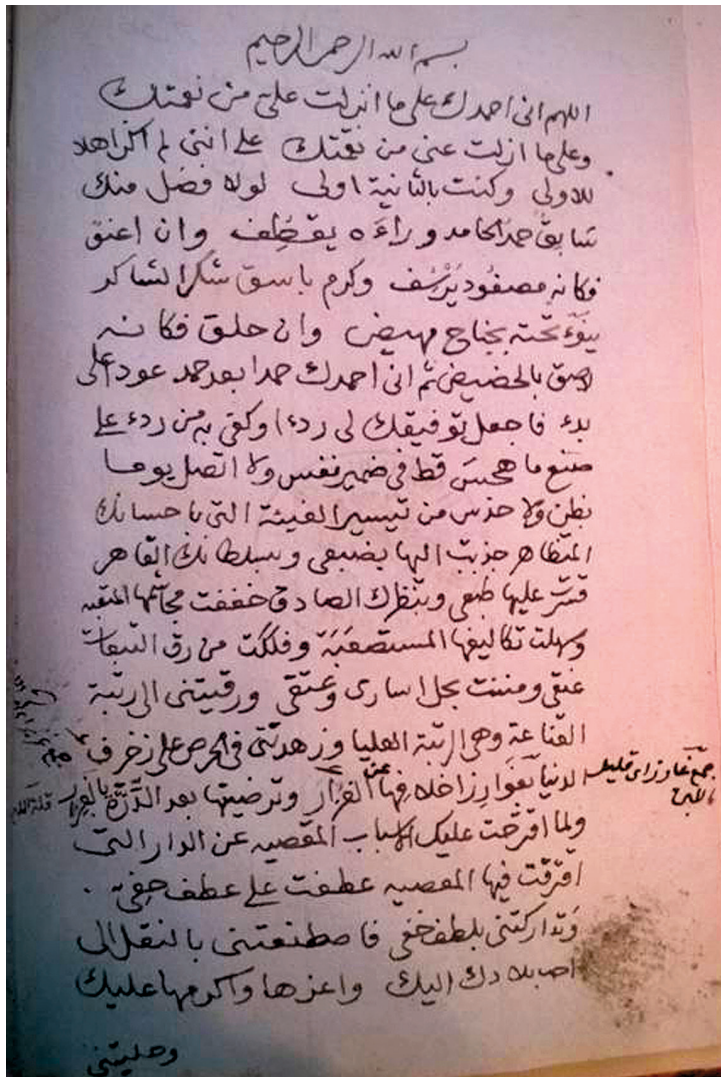 بسم الله الرحمن الرحيم
اللهم انى احمدك على ما انزلت على من نعمتك
وعلى ما ازلت عنى من نقمتك على اننى لم اكن اهلا
للاولى وكنت بالثانية اولى لولا فضل منك
سابق حمد الحامد وراءه يقطف وان اعنق
فكانه مصفود يرسف وكرم باسق شكر الشاكر
ينوء تحته بجناح مهيض وان حلق فكانه
لاصق بالحضيض ثم انى احمدك حمدا بعد حمد عودا على
بدء فاجعل توفيقك لى ردءا وكفى به من ردء على
صنع ما هجس قط فى ضمير نفس ولا اتصل يوما
بظن ولا حدس من تيسير الفيئة التى باحسانك
المتظاهر جذبت اليها بضبعى وبسلطانك القاهر
قسرت عليها طبعى وبنظرك الصادق خففت
وسهلت تكاليفها المستصعبة وفككت من رق التبعات
عنقى ومننت بحل اسارى وعتقى ورقيتنى الى رتبة
القناعة وهى الرتبة العليا وزهدتنى فى الحرص على زخرف
الدنيا بغوارز اخلافها عن الغزار وترضيتها بعد الدرة بالغرار
ولما اقترحت عليك الاسباب المقصيه عن الدار التى
اقترفت فيها المعصيه عطفت على عطف حفى
وتداركتنى بلطف خفى فاصطنعتنى بالنقل الى
احب بلادك اليك واعزها واكرمها عليك
وحليتنى
جمع غارز اى قليلة اللبن
قلة اللبن